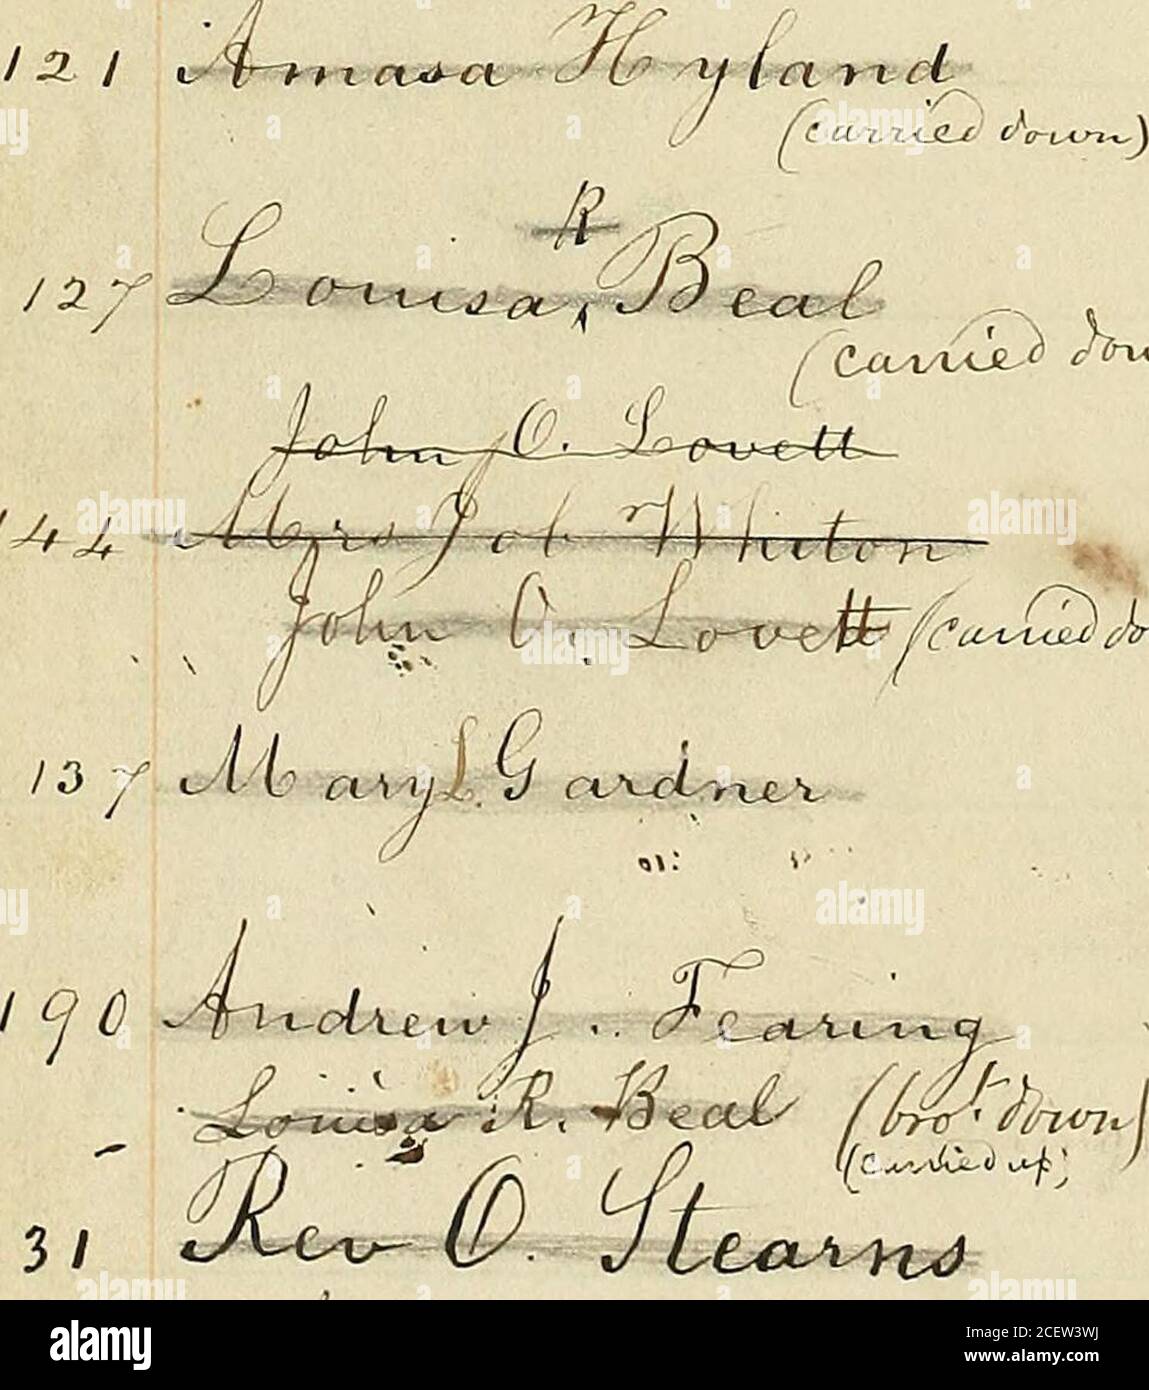 121 Amasa Hyland
(carried down)
R
127 Louisa ^ Beal
(carried dow
John O. Lovett
144 Mrs Job Whiton
John O. Lovett (carried do
137 Mary L. Gardner
190 Andrew J. Fearing
Louisa R. Beal (bro.t down)
(carried up)
- 
31 Rev O. Stearns
alamy
Image ID: 2CEW3WJ
www.alamy.com